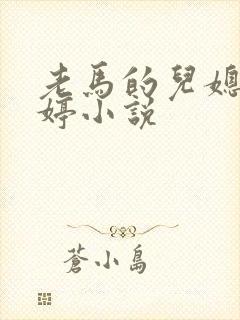 老馬的兒媳
婷小説
蒼小島